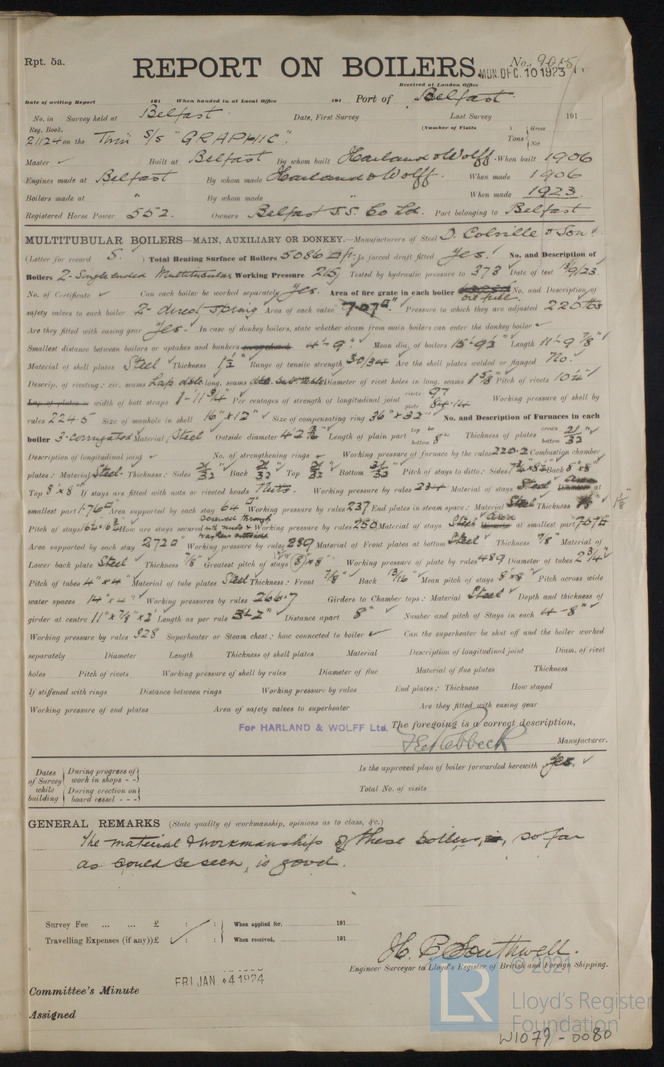 Rpt. 5a.
REPORT ON BOILERS.
No. 9015
MON. DEC. 10 1923
Received at London Office
Date of writing Report 191 When handed in at Local Office 191 Port of Belfast
No. in Survey held at Belfast Date, First Survey Last Survey 191
Reg. Book. (Number of Visits
21124 on the Twin S/S "GRAPHIC". Tons { Gross Net
Master ✓ Built at Belfast By whom built Harland & Wolff When built 1906
Engines made at Belfast By whom made Harland & Wolff. When made 1906
Boilers made at " By whom made " When made 1923
Registered Horse Power 552. Owners Belfast S.S. Co Ld. Port belonging to Belfast
MULTITUBULAR BOILERS—MAIN, AUXILIARY OR DONKEY.—Manufacturers of Steel D. Colville & Son
(Letter for record S.) Total Heating Surface of Boilers 5086 Is forced draft fitted Yes. No. and Description of
Boilers 2-Single ended Multitubular Working Pressure 215 Tested by hydraulic pressure to 373 Date of test /9/23
No. of Certificate ✓ Can each boiler be worked separately Yes. Area of fire grate in each boiler oil fuel. No. and Description of
safety valves to each boiler 2- direct spring Area of each valve 7.07 Pressure to which they are adjusted 220 lbs
Are they fitted with easing gear Yes. In case of donkey boilers, state whether steam from main boilers can enter the donkey boiler ✓
Smallest distance between boilers or uptakes and bunkers 4'-9" Mean dia. of boilers 15'-9 Length 11'-9 7/8"
Material of shell plates Steel Thickness Range of tensile strength 30/34 Are the shell plates welded or flanged No.
Descrip. of riveting: cir. seams Lap double long. seams Diameter of rivet holes in long. seams 1 5/8" Pitch of rivets 10
width of butt straps 1-11 3/4 Per centages of strength of longitudinal joint rivets 97 plate Working pressure of shell by
rules 224.5 Size of manhole in shell 16" x 12" Size of compensating ring 36" x 32" No. and Description of Furnaces in each
boiler 3-corrugated Material Steel Outside diameter 4'2 Length of plain part top bottom 8" Thickness of plates crown bottom 21/32
Description of longitudinal joint No. of strengthening rings Working pressure of furnace by the rules 220.2 Combustion chamber
plates: Material Steel Thickness: Sides Back Top Bottom Pitch of stays to ditto: Sides Back 8" x 8"
Top 8" x 8" If stays are fitted with nuts or riveted heads Nuts. Working pressure by rules 234 Material of stays Steel area at
smallest part 1.76 Area supported by each stay 64 Working pressure by rules 237 End plates in steam space: Material Steel Thickness 1 1/8"
Pitch of stays How are stays secured screwed through with nuts & washers outside Working pressure by rules 250 Material of stays Steel area at smallest part 7.07
Area supported by each stay 272 Working pressure by rules 289 Material of Front plates at bottom Steel Thickness 7/8" Material of
Lower back plate Steel Thickness 7/8" Greatest pitch of stays Working pressure of plate by rules 489 Diameter of tubes 2 3/4"
Pitch of tubes 4" x 4" Material of tube plates Steel Thickness: Front 7/8 Back 13/16" Mean pitch of stays 8" x 8" Pitch across wide
water spaces 14" x 4" Working pressures by rules 266.7 Girders to Chamber tops: Material Steel Depth and thickness of
girder at centre 11" x 7/8" x 2 Length as per rule 34 Distance apart 8" Number and pitch of Stays in each 4-8"
Working pressure by rules 328 Superheater or Steam chest: how connected to boiler ✓ Can the superheater be shut off and the boiler worked
separately Diameter Length Thickness of shell plates Material Description of longitudinal joint Diam. of rivet
holes Pitch of rivets Working pressure of shell by rules Diameter of flue Material of flue plates Thickness
If stiffened with rings Distance between rings Working pressure by rules End plates: Thickness How stayed
Working pressure of end plates Area of safety valves to superheater Are they fitted with easing gear
The foregoing is a correct description,
For HARLAND & WOLFF Ltd. Manufacturer.
Dates of Survey while building { During progress of work in shops - - During erection on board vessel - - - Is the approved plan of boiler forwarded herewith Yes. ✓
Total No. of visits
GENERAL REMARKS (State quality of workmanship, opinions as to class, &c.)
The material & workmanship of these boilers, so far
as could be seen, is good.
Survey Fee ... ... £ : : When applied for, 191
Travelling Expenses (if any) £ ✓ : : When received, 191
H. P. Southwell.
Engineer Surveyor to Lloyd's Register of British and Foreign Shipping.
Committee's Minute FRI. JAN. 4 1924
Assigned
© 2021
LR
Lloyd's Register
Foundation
W1079-0080